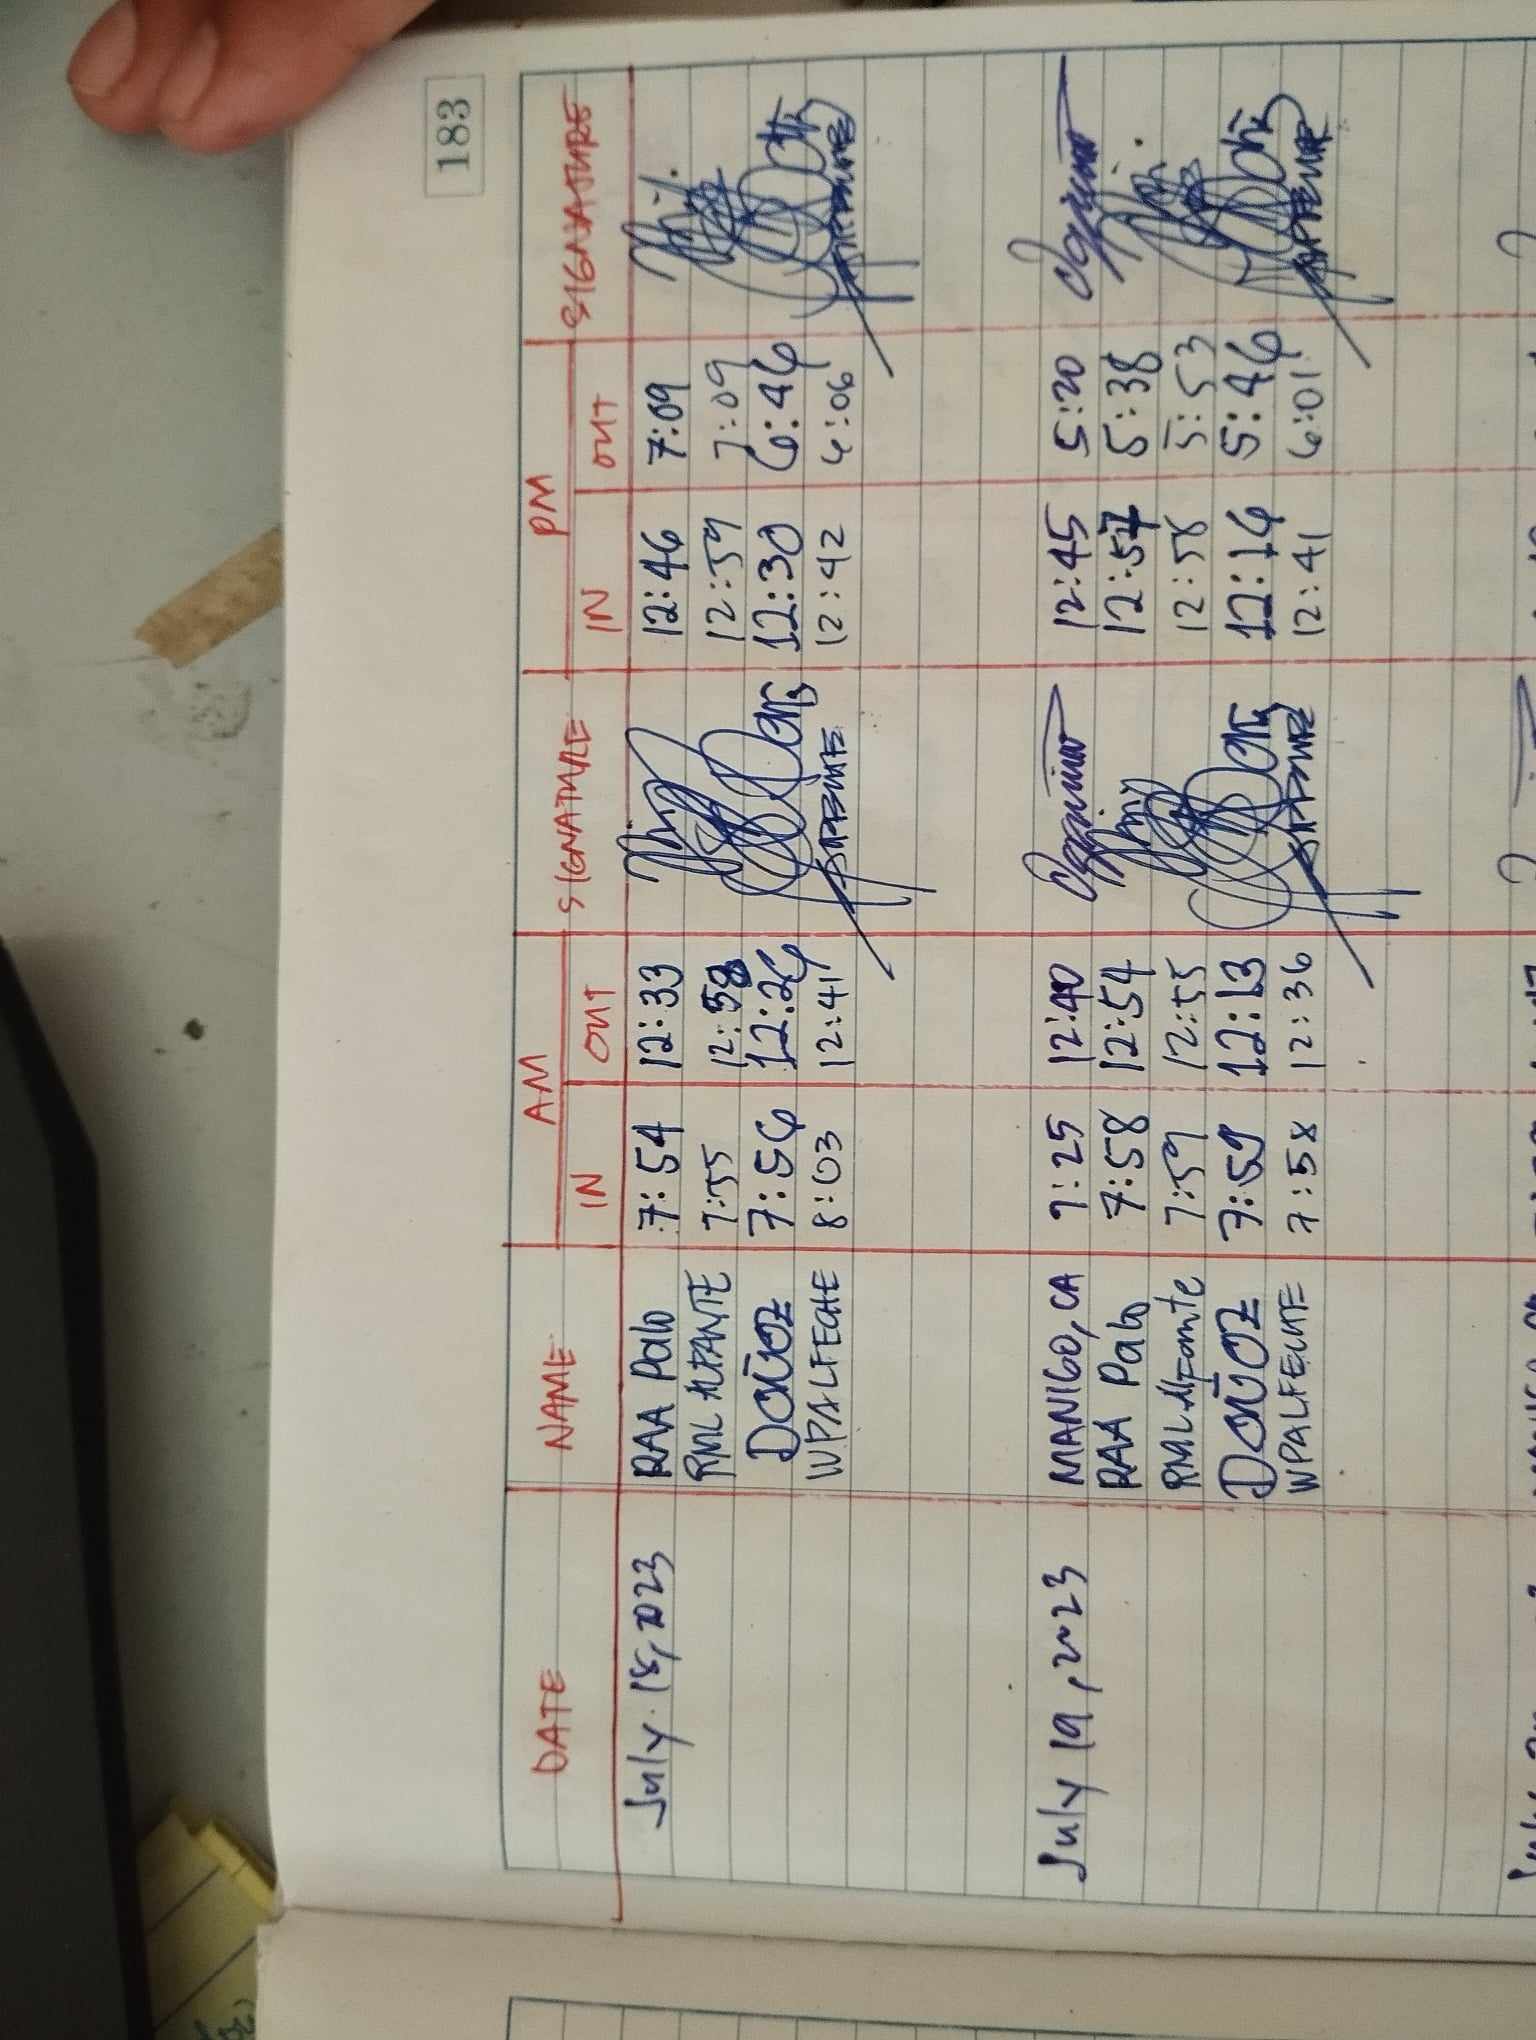 183
DATE NAME AM SIGNATURE PM SIGNATURE
IN OUT IN OUT
July 18, 2023 RAA Palo 7:54 12:33 12:46 7:09
RML ALPANTE 7:55 12:58 12:59 7:09
DAÑOZ 7:56 12:26 12:30 6:46
WPALFECHE 8:03 12:41 12:42 4:06
July 19, 2023 MANIGO, CA 7:25 12:40 12:45 5:20
RAA Palo 7:58 12:54 12:57 5:38
RML Alpante 7:59 12:55 12:58 5:53
DAÑOZ 7:59 12:13 12:16 5:46
WPALFECHE 7:58 12:36 12:41 6:01